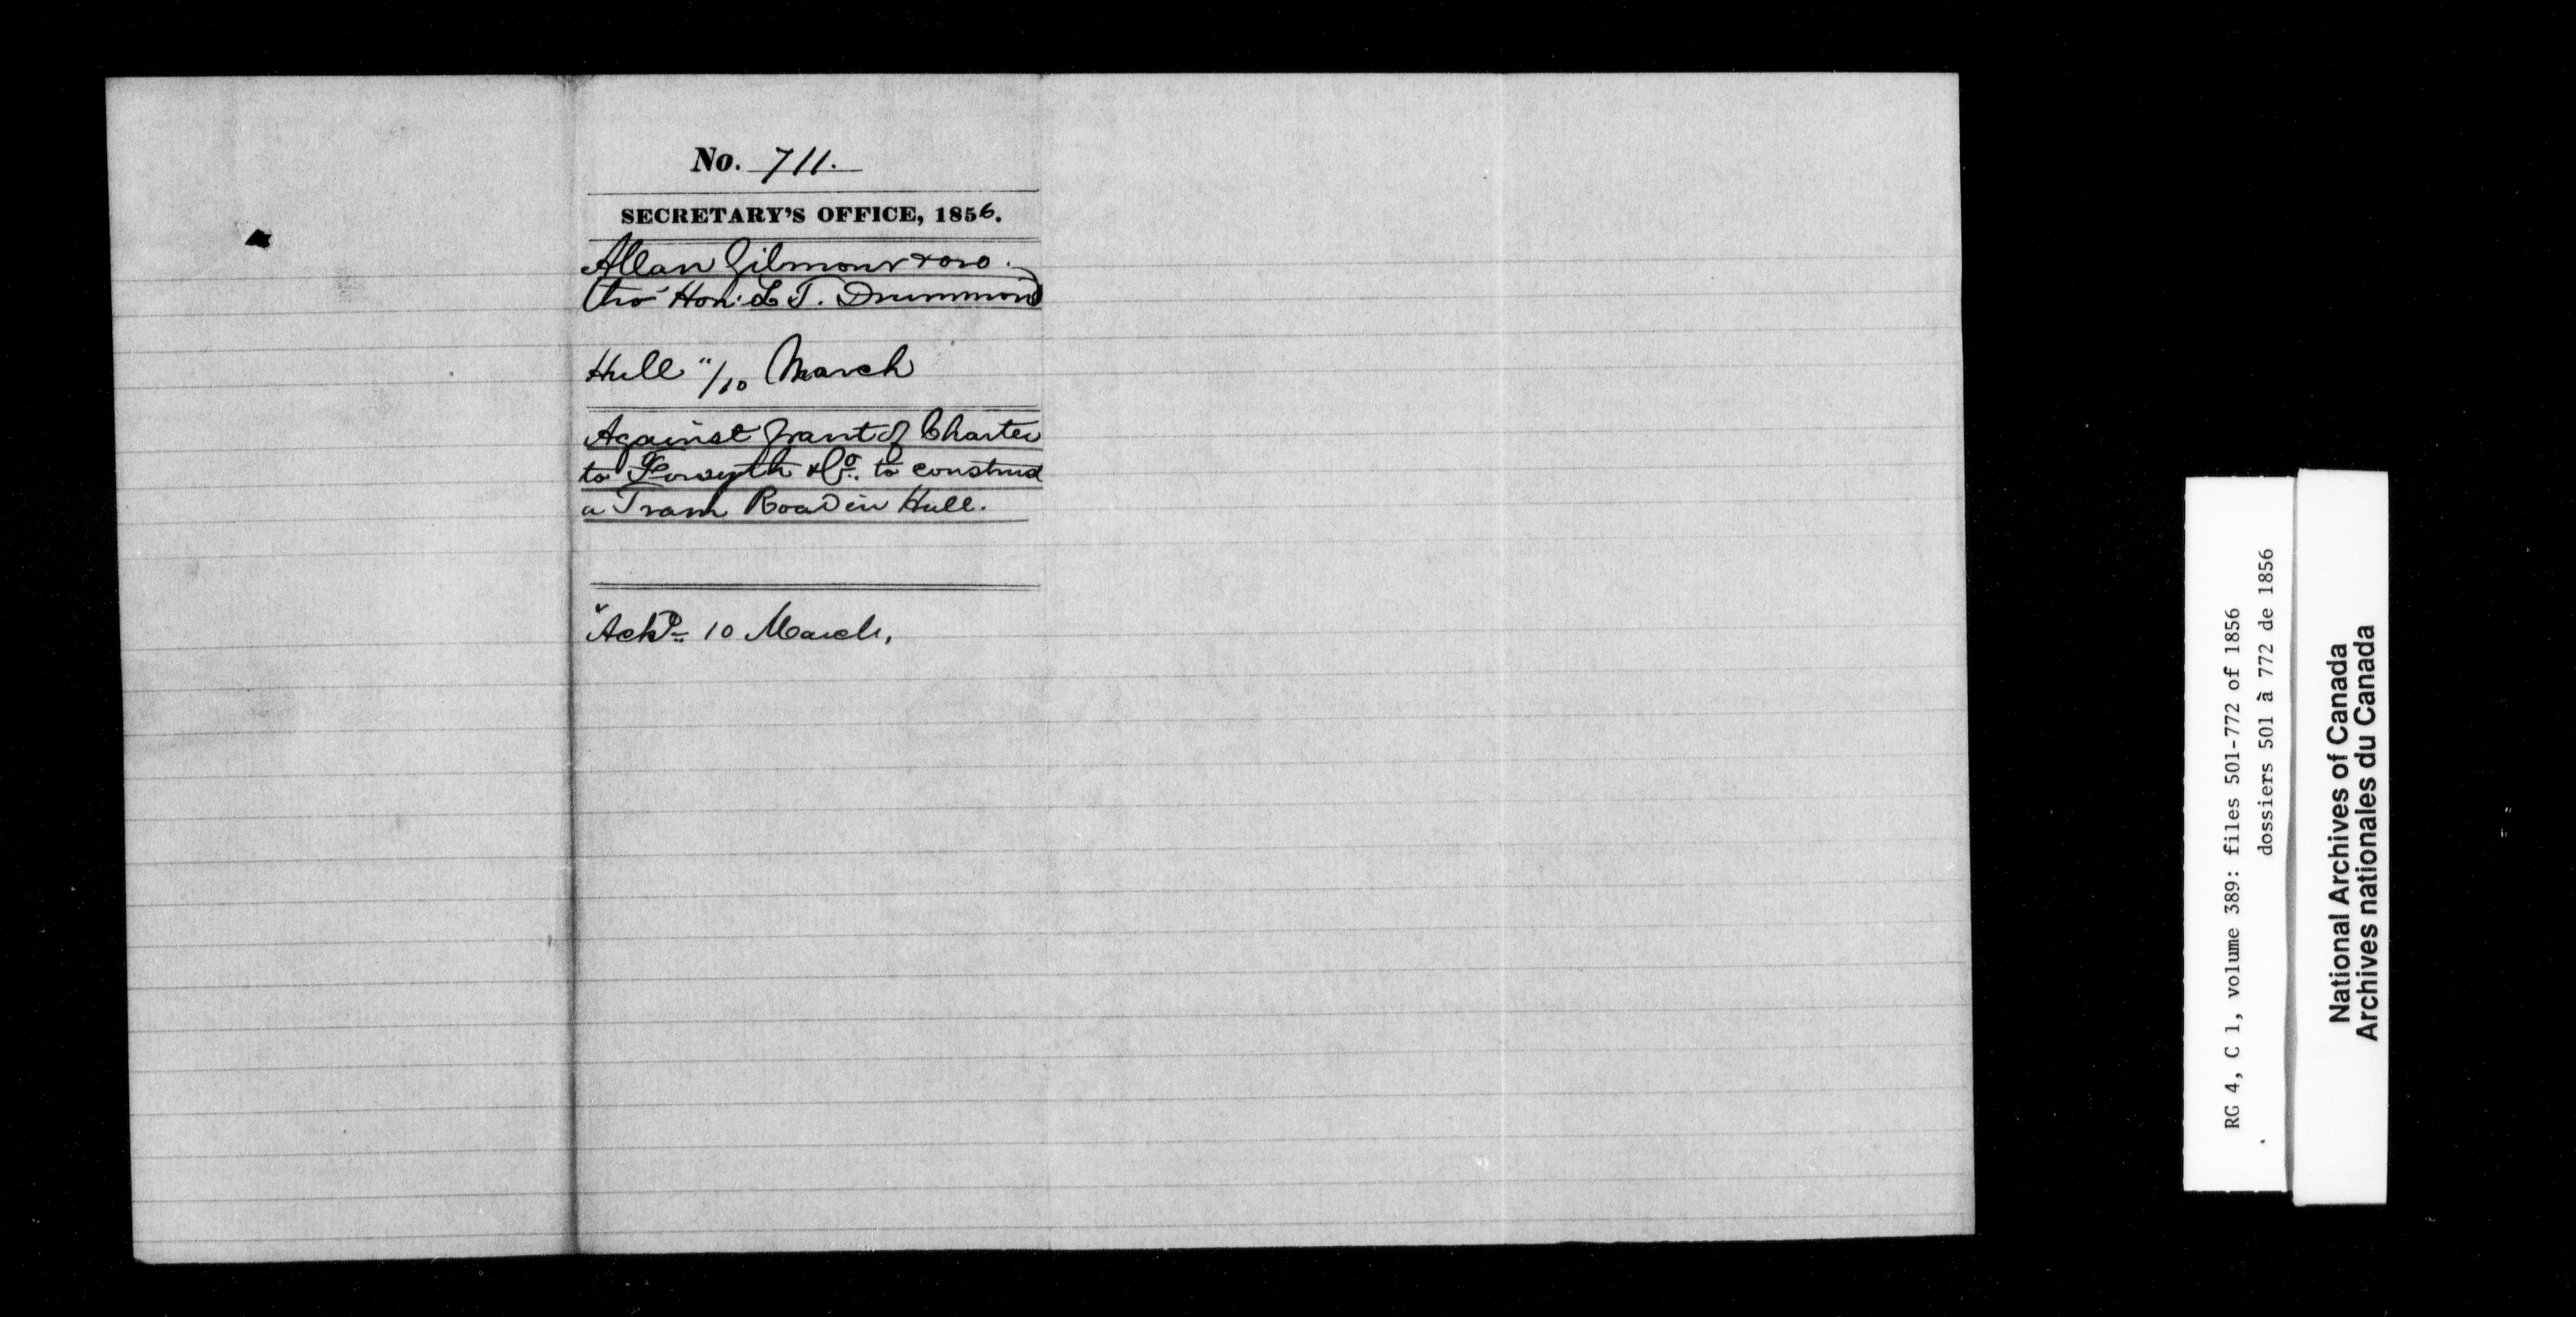 No. 711.
SECRETARY'S OFFICE, 1856.
Allan Gilmour & ors.
(thro' Hon: L T. Drummond)
Hull "/10 March
Against Grant of Charter
to Forsyth & Co. to construct
a Tram Road in Hull.
"Ackd. 10 March,
RG 4, C 1, volume 389: files 501-772 of 1856
dossiers 501 à 772 de 1856
National Archives of Canada
Archives nationales du Canada